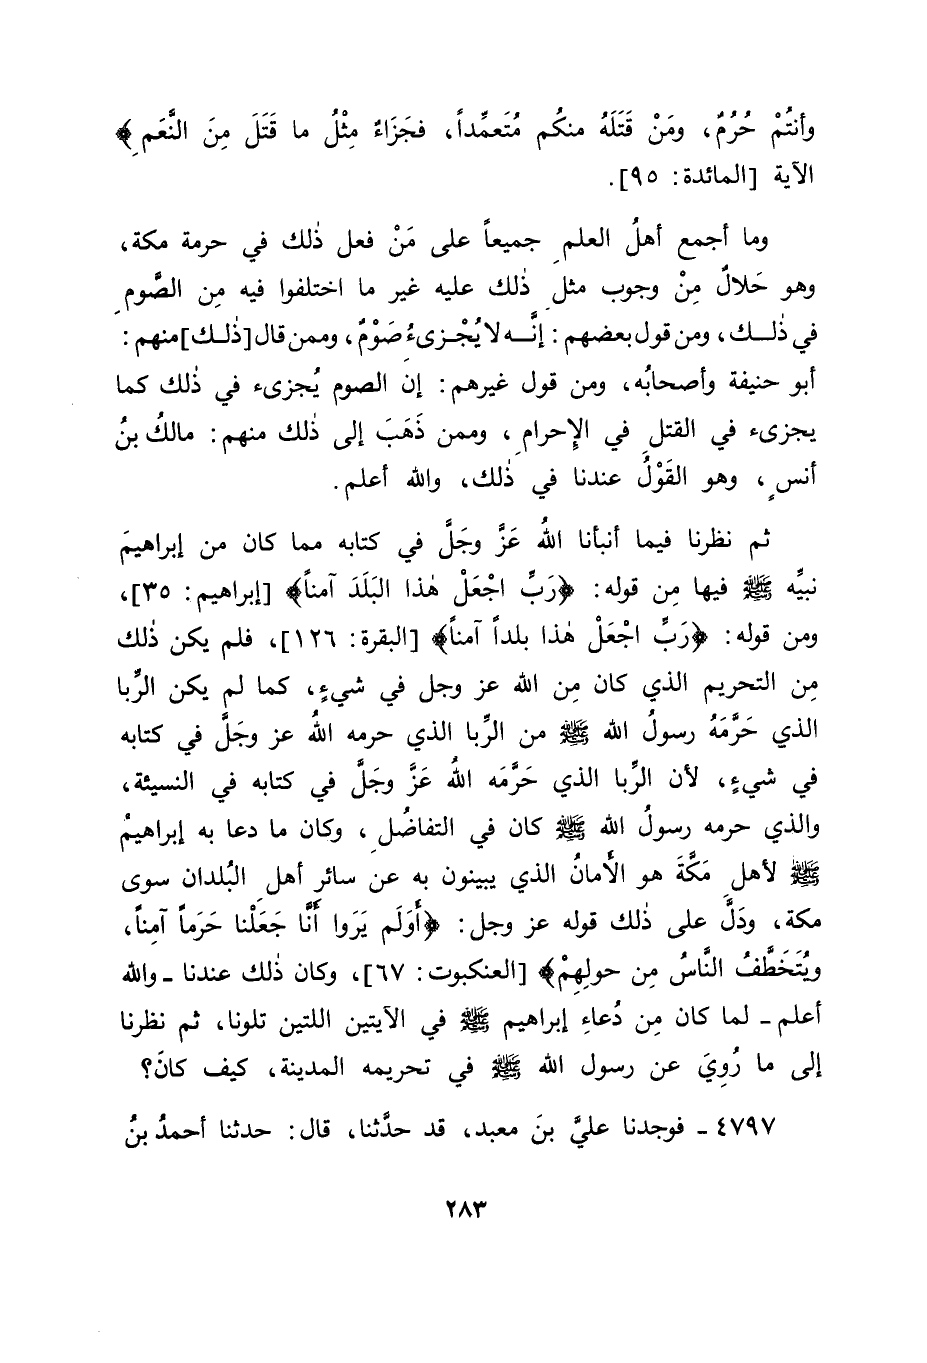 وأنتُمْ حُرُمٌ، ومَنْ قَتَلَهُ منكُم مُتَعمِّداً، فجَزَاءٌ مِثْلُ ما قَتَلَ مِنَ النَّعَمِ﴾
الآية [المائدة: ٩٥].
وما أجمع أهلُ العلمِ جميعاً على مَنْ فعل ذٰلك في حرمة مكة،
وهو حَلالٌ مِنْ وجوب مثلِ ذٰلك عليه غير ما اختلفوا فيه مِن الصَّومِ
في ذٰلـك، ومن قول بعضهم: إنَّـه لا يُجْـزىءُ صَوْمٌ، وممن قال [ذٰلـك] منهم:
أبو حنيفة وأصحابُه، ومن قول غيرهم: إن الصوم يُجزىء في ذٰلك كما
يجزىء في القتلِ في الإِحرامِ، وممن ذَهَبَ إلى ذٰلك منهم: مالكُ بنُ
أنسٍ، وهو القَوْلُ عندنا في ذٰلك، والله أعلم.
ثم نظرنا فيما أنبأنا اللهُ عَزَّ وجَلَّ في كتابه مما كان من إبراهيمَ
نبيِّه ﷺ فيها مِن قوله: ﴿رَبِّ اجْعَلْ هٰذا البَلَدَ آمناً﴾ [إبراهيم: ٣٥]،
ومن قوله: ﴿رَبِّ اجْعَلْ هٰذا بلداً آمناً﴾ [البقرة: ١٢٦]، فلم يكن ذٰلك
مِن التحريم الذي كان مِن الله عز وجل في شيءٍ، كما لم يكن الرِّبا
الذي حَرَّمَهُ رسولُ الله ﷺ من الرِّبا الذي حرمه اللهُ عز وجَلَّ في كتابه
في شيءٍ، لأن الرِّبا الذي حَرَّمَه اللهُ عَزَّ وجَلَّ في كتابه في النسيئة،
والذي حرمه رسولُ الله ﷺ كان في التفاضُلِ، وكان ما دعا به إبراهيمُ
ﷺ لأهلِ مَكَّةَ هو الأَمانُ الذي يبينون به عن سائر أهلِ البُلدان سوى
مكة، ودَلَّ على ذٰلك قوله عز وجل: ﴿أَوَلَم يَرَوا أَنَّا جَعَلْنا حَرَماً آمِناً،
ويُتَخَطَّفُ النَّاسُ مِن حولِهِمْ﴾ [العنكبوت: ٦٧]، وكان ذٰلك عندنا ـ والله
أعلم ـ لما كان مِن دُعاءِ إبراهيم ﷺ في الآيتين اللتين تلونا، ثم نظرنا
إلى ما رُوِيَ عن رسول الله ﷺ في تحريمه المدينة، كيف كانَ؟
٤٧٩٧ ـ فوجدنا عليَّ بنَ معبد، قد حدَّثنا، قال: حدثنا أحمدُ بنُ
٢٨٣